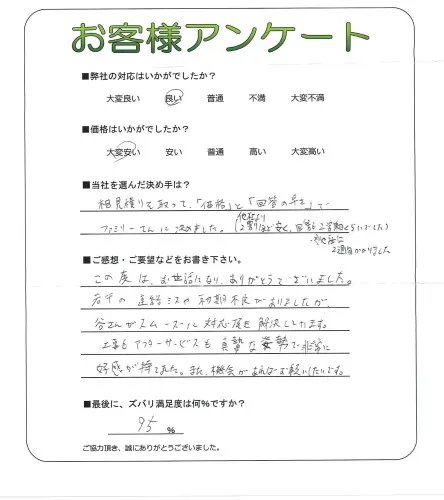 お客様アンケート
■弊社の対応はいかがでしたか?
大変良い 良い 普通 不満 大変不満
■価格はいかがでしたか?
大変安い 安い 普通 高い 大変高い
■当社を選んだ決め手は?
相見積りを取って、「価格」と「回答の早さ」で
他社より
ファミリーさんに決めました。(2割ほど安く、回答も2日程くらいでした)
他社は
2週間かかりました
■ご感想・ご要望などをお書き下さい。
この度は、お世話になり、ありがとうございました。
若干の連絡ミスや初期不良がありましたが、
谷さんがスムーズに対応頂き解決してます。
工事もアフターサービスも真摯な姿勢で非常に
好感が持てました。また、機会があればお願いしたいです。
■最後に、ズバリ満足度は何%ですか?
95 %
ご協力頂き、誠にありがとうございました。